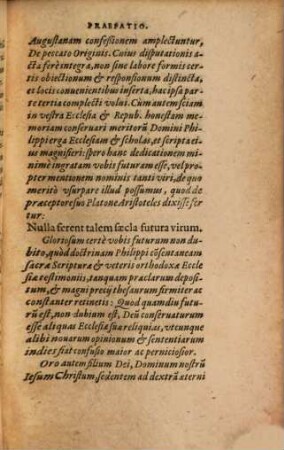 PRAEFATIO.
Augustanam confessionem amplectuntur,
De peccato Originis. Cuius disputationis a-
cta ferè integra, non sine labore formis cer-
tis obiectionum & responsionum distincta,
et locis conuenientibus inserta, hac ipsa par-
te tertia complecti volui. Cum autem sciam
in vestra Ecclesia & Repub. honestam me-
moriam conseruari meritorũ Domini Phi-
lippi erga Ecclesiam & scholas, et scripta ei-
us magnifieri: spero hanc dedicationem mi-
nimè ingratam vobis futuram esse, vel pro-
pter mentionem nominis tanti viri, de quo
meritò vsurpare illud possumus, quod de
præceptore suo Platone Aristoteles dixisse fer-
tur:
Nulla ferent talem sæcla futura virum.
Gloriosum certè vobis futurum non du-
bito, quod doctrinam Philippi cũ sentaneam
sacræ Scripturæ & veteris orthodoxæ Eccle
siæ testimonijs, tanquam præclarum depos-
tum, & magni precij thesaurum firmiter ac
constanter retinetis: Quod quamdiu futu-
rũ est, non dubium est, Deũ conseruaturum
esse aliquas Ecclesiæ suæ reliquias, vtcunque
alibi nouarum opinionum & sententiarum
in dies fiat confusio maior ac perniciosior.
Oro autem filium Dei, Dominum nostrũ
Iesum Christum, sedentem ad dextrã æterni